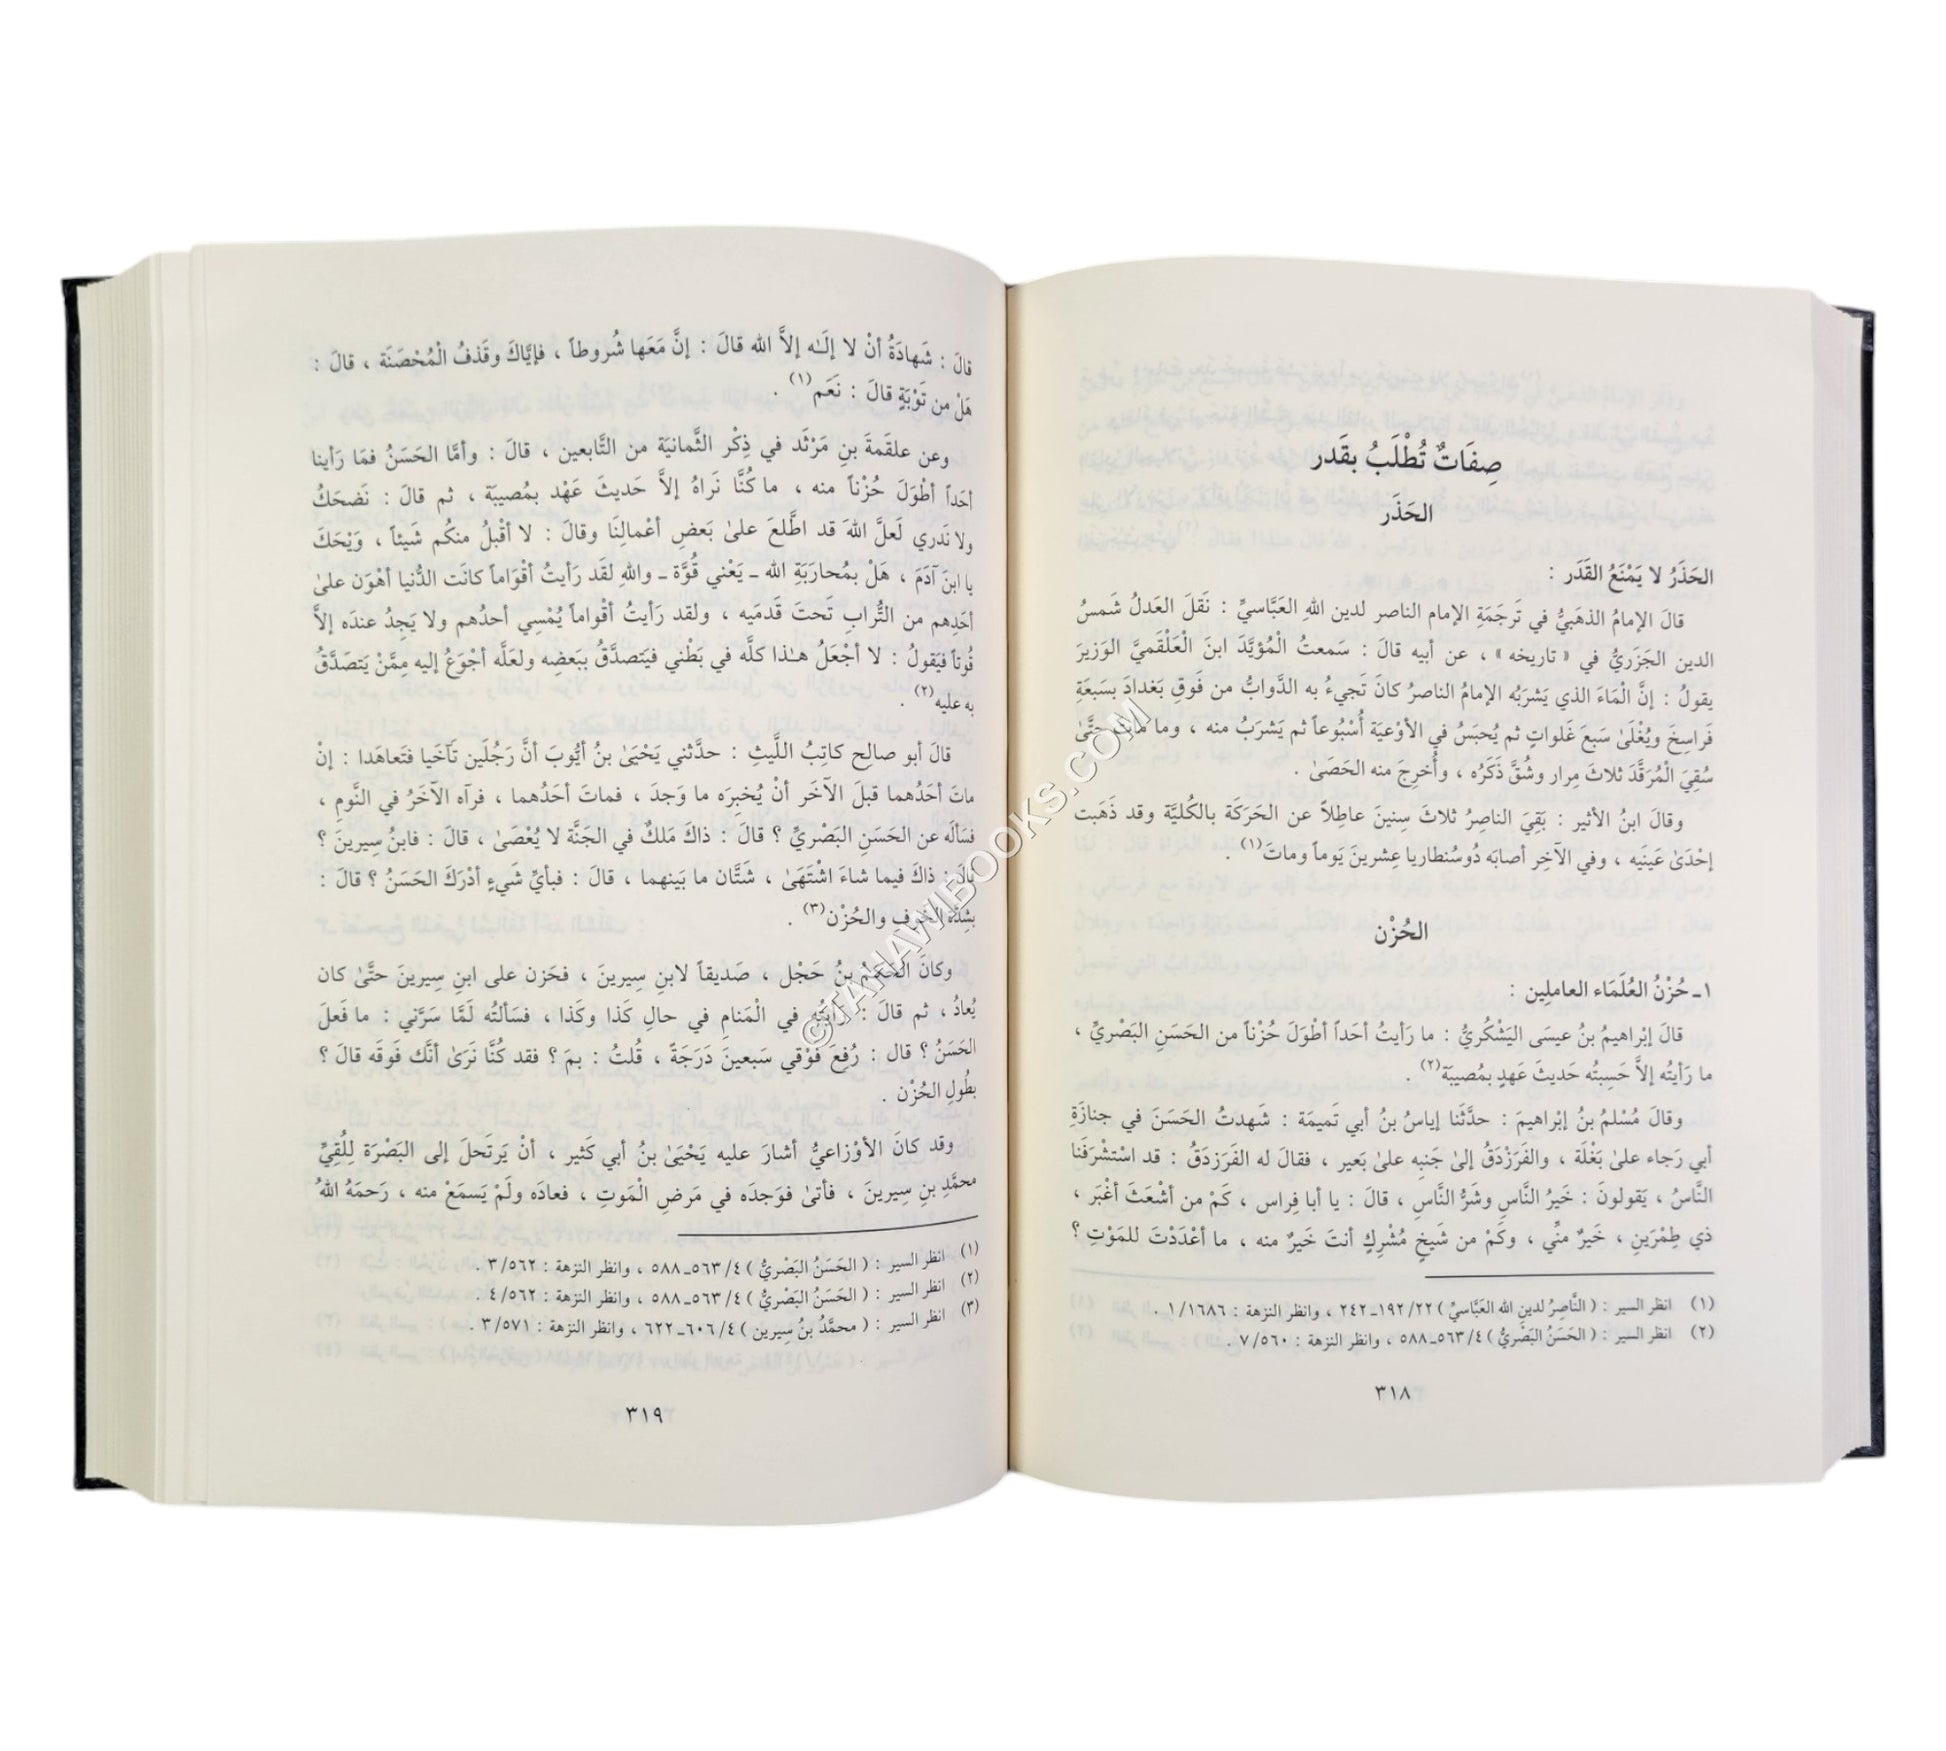 صِفَاتٌ تُطْلَبُ بقَدَر
الحَذَر
الحَذَرُ لا يَمْنَعُ القَدَر :
قالَ الإمامُ الذهَبيُّ في تَرجَمَةِ الإمام الناصر لدين اللهِ العَبَّاسيِّ : نَقلَ العَدلُ شَمسُ
الدين الجَزَريُّ في « تاريخه » ، عن أبيه قالَ : سَمعتُ الْمُؤيَّدَ ابنَ الْعَلْقَميَّ الوَزيرَ
يقولُ : إنَّ الْمَاءَ الذي يَشرَبُه الإمامُ الناصرُ كانَ تَجيءُ به الدَّوابُّ من فَوقِ بَغدادَ بسَبعَةِ
فَراسِخَ ويُغْلَىٰ سَبعَ غَلواتٍ ثم يُحبَسُ في الأوْعيَة أُسْبُوعاً ثم يَشرَبُ منه ، وما ماتَ حتَّىٰ
سُقِيَ الْمُرَقَّدَ ثلاثَ مِرار وشُقَّ ذَكَرُه ، وأُخرِجَ منه الحَصَىٰ .
وقالَ ابنُ الأثير : بَقِيَ الناصِرُ ثلاثَ سِنينَ عاطِلاً عن الحَرَكَة بالكُليَّة وقد ذَهَبت
إحْدَىٰ عَينَيه ، وفي الآخِر أصابَه دُوسُنطاريا عِشرينَ يَوماً وماتَ(١) .
الحُزْن
١ـ حُزْنُ العُلَمَاء العاملِين :
قالَ إبْراهيمُ بنُ عيسَى اليَشْكُريُّ : ما رَأيتُ أحَداً أطْوَلَ حُزْناً من الحَسَنِ البَصْريِّ ،
ما رَأيتُه إلاَّ حَسِبتُه حَديثَ عَهدٍ بمُصيبَة(٢) .
وقالَ مُسْلمُ بنُ إبْراهيمَ : حدَّثَنا إياسُ بنُ أبي تَميمَة : شَهدتُ الحَسَنَ في جنازَةِ
أبي رَجاء علىٰ بَغْلَة ، والفَرَزْدَقُ إلىٰ جَنبِه علىٰ بَعير ، فقالَ له الفَرَزدَقُ : قد اسْتشْرَفَنا
النَّاسُ ، يَقولونَ : خَيرُ النَّاسِ وشَرُّ النَّاسِ ، قالَ : يا أبا فِراس ، كَمْ من أشْعَثَ أغْبَر ،
ذي طِمْرَينِ ، خَيرٌ منِّي ، وكَمْ من شَيخٍ مُشْرِكٍ أنتَ خَيرٌ منه ، ما أعْدَدْتَ للمَوْتِ ؟
(١) انظر السير : ( النَّاصِرُ لدينِ الله العَبَّاسيُّ ) ١٩٢/٢٢ـ٢٤٢ ، وانظر النزهة : ١/١٦٨٦ .
(٢) انظر السير : ( الحَسَنُ البَصْريُّ ) ٥٦٣/٤ـ٥٨٨ ، وانظر النزهة : ٧/٥٦٠ .
٣١٨
قالَ : شَهادَةُ أنْ لا إلَـٰه إلاَّ الله قالَ : إنَّ مَعَها شُروطاً ، فإيَّاكَ وقَذفُ الْمُحْصَنَة ، قالَ :
هَلْ من تَوْبَةٍ قالَ : نَعَم(١) .
وعن علقمَةَ بنِ مَرْثَد في ذِكْر الثَّمانيَة من التَّابعين ، قالَ : وأمَّا الحَسَنُ فمَا رَأينا
أحَداً أطْوَلَ حُزْناً منه ، ما كُنَّا نَراهُ إلاَّ حَديثَ عَهْد بمُصيبَة ، ثم قالَ : نَضحَكُ
ولا نَدري لَعلَّ اللهَ قد اطَّلعَ علىٰ بَعضِ أعْمالِنَا وقالَ : لا أقْبلُ منكُم شَيئاً ، وَيْحَكَ
يا ابنَ آدَمَ ، هَلْ بمُحارَبَةِ الله ـ يَعْني قُوَّة ـ واللهِ لقَد رَأيتُ أقْوَاماً كانَت الدُّنيا أهْوَن علىٰ
أحَدِهم من التُّرابِ تَحتَ قَدَميه ، ولقد رَأيتُ أقْواماً يُمْسِي أحدُهم ولا يَجِدُ عندَه إلاَّ
قُوتاً فيَقولُ : لا أجْعَلُ هـٰذا كلَّه في بَطْني فيَتصدَّقُ ببَعضِه ولعَلَّه أجْوَعُ إليه مِمَّنْ يَتصَدَّقُ
به عليه(٢) .
قالَ أبو صالِح كاتِبُ اللَّيثِ : حدَّثني يَحْيَىٰ بنُ أيُّوبَ أنَّ رَجُلَين تَآخَيا فتَعاهَدا : إنْ
ماتَ أحَدُهما قبلَ الآخَر أنْ يُخبِرَه ما وَجدَ ، فماتَ أحَدُهما ، فرآه الآخَرُ في النَّومِ ،
فسَألَه عن الحَسَنِ البَصْريِّ ؟ قالَ : ذاكَ مَلكٌ في الجَنَّة لا يُعْصَىٰ ، قالَ : فابنُ سِيرينَ ؟
قالَ : ذاكَ فيما شاءَ اشْتَهَىٰ ، شَتَّان ما بَينهما ، قالَ : فبأيِّ شَيءٍ أدْرَكَ الحَسَنُ ؟ قالَ :
بشِدَّة الخَوفِ والحُزْن(٣) .
وكانَ الحَكَمُ بنُ حَجْل ، صَديقاً لابنِ سِيرينَ ، فحَزن على ابنِ سِيرينَ حتَّىٰ كان
يُعادُ ، ثم قالَ : رَأيتُه في الْمَنامِ في حالِ كَذا وكَذا ، فسَألتُه لَمَّا سَرَّني : ما فَعلَ
الحَسَنُ ؟ قال : رُفِعَ فَوْقي سَبعينَ دَرَجَةً ، قُلتُ : بمَ ؟ فقد كُنَّا نَرَىٰ أنَّك فَوقَه قالَ ؟
بطُولِ الحُزْن .
وقد كانَ الأوْزاعيُّ أشارَ عليه يَحْيَىٰ بنُ أبي كَثير ، أنْ يَرتَحلَ إلى البَصْرَة لِلُقِيِّ
محمَّدِ بنِ سِيرينَ ، فأتىٰ فوَجدَه في مَرضِ الْمَوتِ ، فعادَه ولَمْ يَسمَعْ منه ، رَحمَهُ اللهُ
(١) انظر السير : ( الحَسَنُ البَصْريُّ ) ٥٦٣/٤ـ٥٨٨ ، وانظر النزهة : ٣/٥٦٢ .
(٢) انظر السير : ( الحَسَنُ البَصْريُّ ) ٥٦٣/٤ـ٥٨٨ ، وانظر النزهة : ٤/٥٦٢ .
(٣) انظر السير : ( محمَّدُ بنُ سِيرين ) ٦٠٦/٤ـ٦٢٢ ، وانظر النزهة : ٣/٥٧١ .
٣١٩
©TAHAWIBOOKS.COM